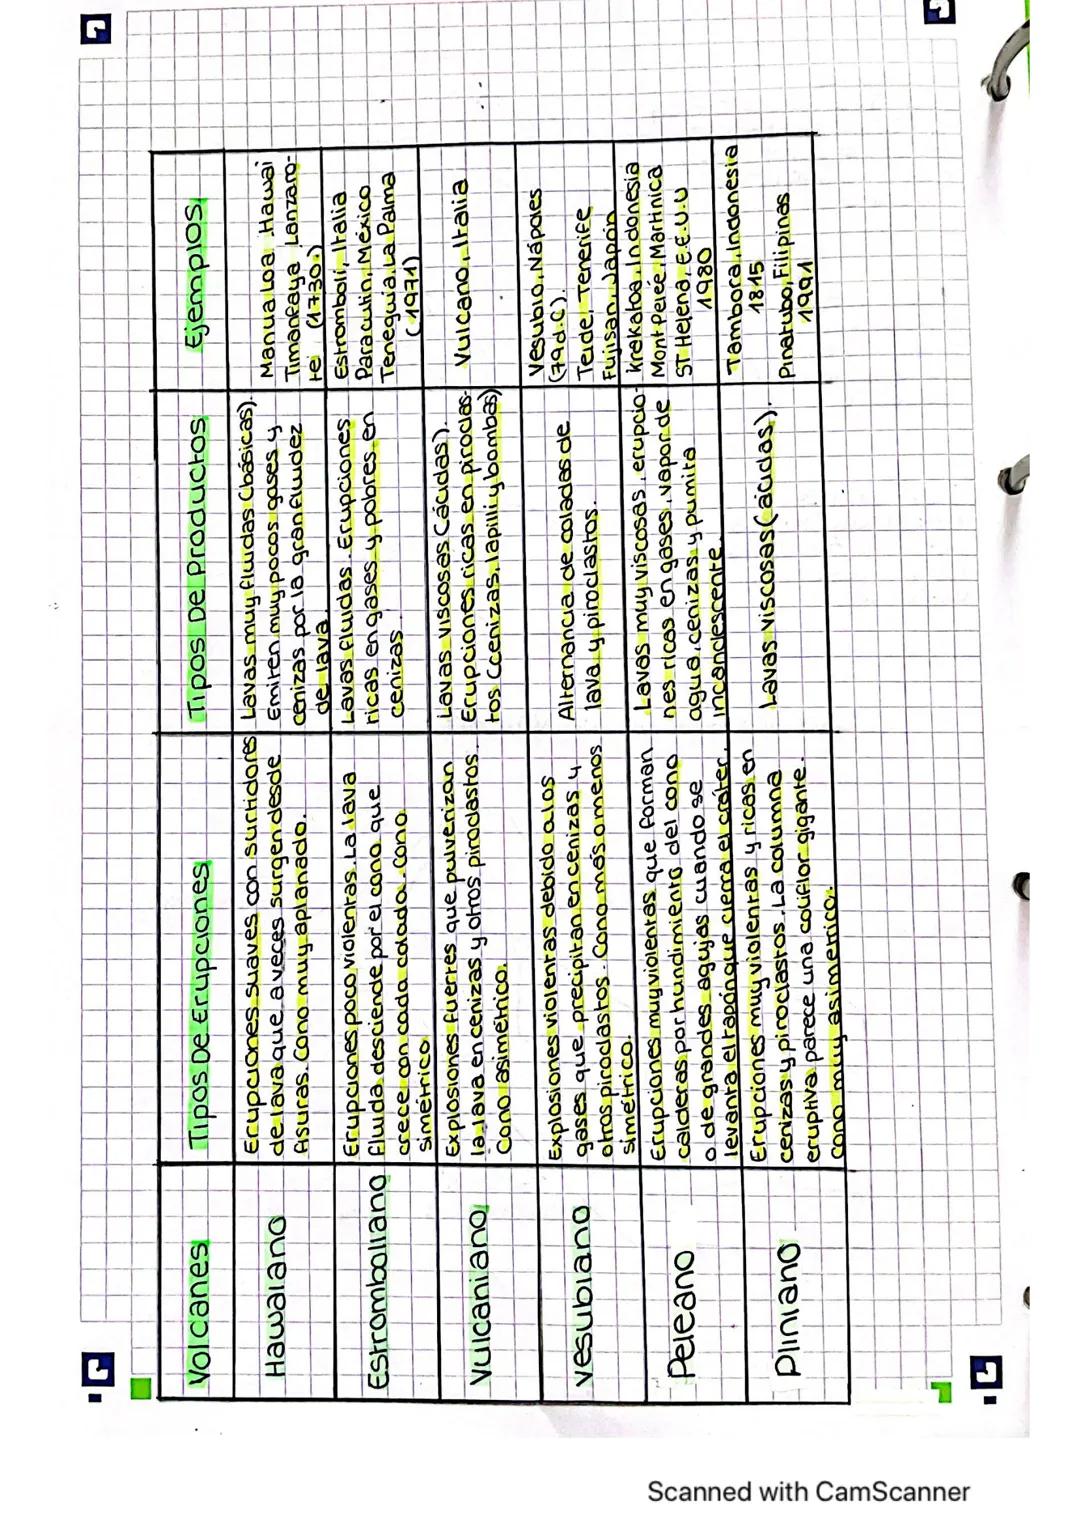 Volcanes
Tipos De Erupciones
Tipos De Productos
Ejemplos
Hawaiano
Erupciones suaves con surtidores
de lava que a veces surgen desde
fisuras. Cono muy aplanado.
Lavas muy fluidas (básicas).
Emiten muy pocos gases y
cenizas por la gran fluidez
de lava.
Manua Loa. Hawai
Timanfaya Lanzaro-
te (1730.)
Estromboliano
Erupciones poco violentas. La lava
fluida desciende por el cono que
crece con cada colada. Cono
simétrico.
Lavas fluidas. Erupciones
ricas en gases y pobres en
cenizas
Estromboli, Italia
Paracutin, México
Teneguia, La Palma
(1971)
Vulcaniano
Explosiones fuertes que pulverizan
la lava en cenizas y otros piroclastos.
Cono asimétrico.
Lavas viscosas (ácidas).
Erupciones ricas en piroclas-
tos (cenizas, lapilli y bombas)
Vulcano, Italia
Vesubiano
Explosiones violentas debido a los
gases que precipitan en cenizas y
otros piroclastos. Cono más o menos
simétrico.
Alternancia de coladas de
lava y piroclastos.
Vesubio, Nápoles
(79 d.C).
Teide, Tenerife
Fujisan, Japón
Peleano
Erupciones muy violentas que forman
calderas por hundimiento del cono
o de grandes agujas cuando se
levanta el tapón que cierra el cráter.
Lavas muy viscosas, erupcio-
nes ricas en gases, vapor de
agua, cenizas y pumita
incandescente
Krekatoa, Indonesia
Mont Peleé, Martinica
ST Helena, E.E.U.U
1980
Pliniano
Erupciones muy violentas y ricas en
cenizas y piroclastos. La columna
eruptiva parece una coliflor gigante.
Cono muy asimétrico.
Lavas viscosas (ácidas).
Tambora, Indonesia
1815
Pinatubo, Filipinas
1991
Scanned with CamScanner